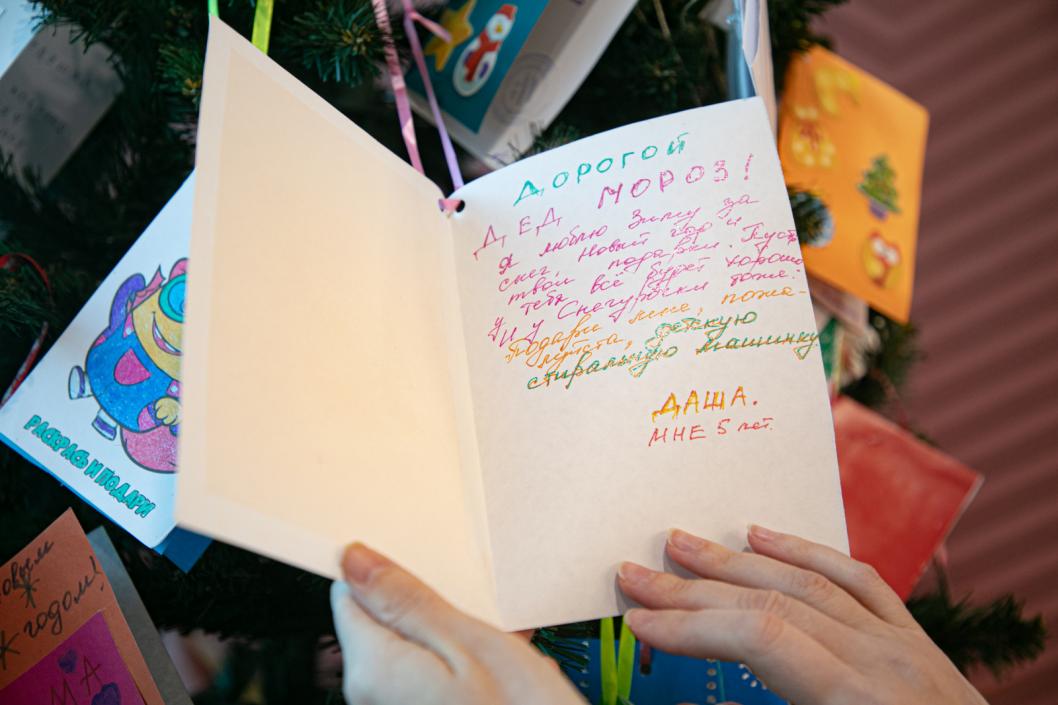 ДОРОГОЙ
ДЕД МОРОЗ!
Я люблю Зиму за
снег, Новый год и
твои подарки. Пусть
у тебя всё будет хорошо
и у Снегурочки тоже!
Подари мне, пожа-
луйста, детскую
стиральную машинку
ДАША.
МНЕ 5 лет.
РАСКРАСЬ И ПОДАРИ
Новым
годом!
МА